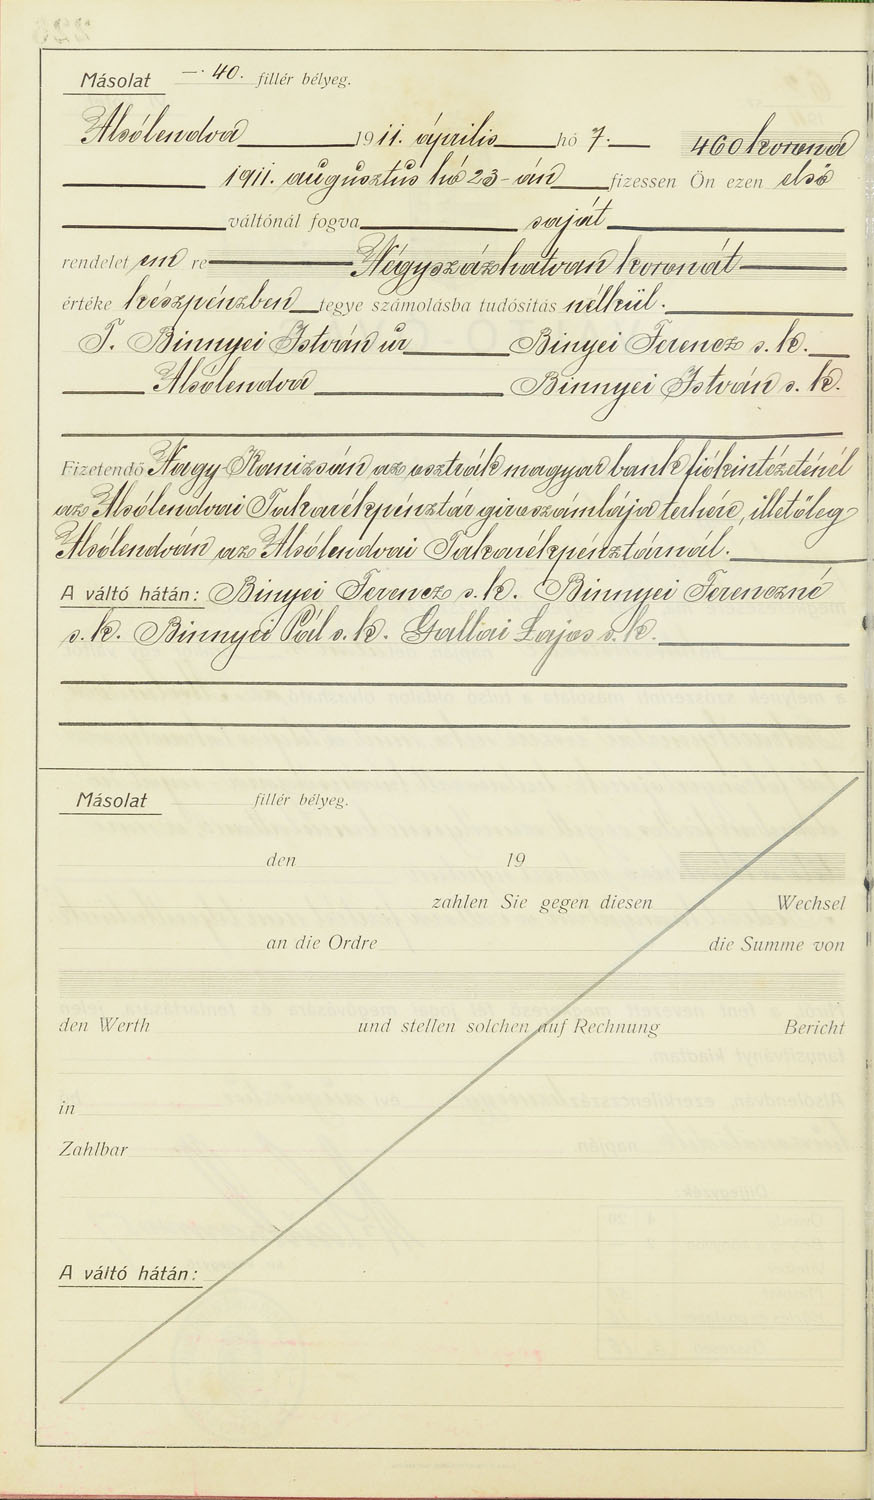 Másolat —·40. fillér bélyeg.
Alsólendva 1911. április hó 7. 460 korona
1911. augusztus hó 23-án fizessen Ön ezen első
váltónál fogva saját
rendelet em re Négyszázhatvan koronát
értéke készpénzben tegye számolásba tudósítás nélkül.
T. Binnyei István úr Binyei Ferencz s. k.
Alsólendva Binnyei István s. k.
Fizetendő Nagy-Kanizsán az osztrák magyar bank fiókintézeténél
az Alsólendvai Takarékpénztár giroszámlája terhére, illetőleg
Alsólendván az Alsólendvai Takarékpénztárnál.
A váltó hátán: Binyei Ferencz s. k. Binnyei Ferenczné
s. k. Binnyei Pál s. k. Gallai Lajos s. k.
Másolat fillér bélyeg.
den 19
zahlen Sie gegen diesen Wechsel
an die Ordre die Summe von
den Werth und stellen solchen auf Rechnung Bericht
in
Zahlbar
A váltó hátán: